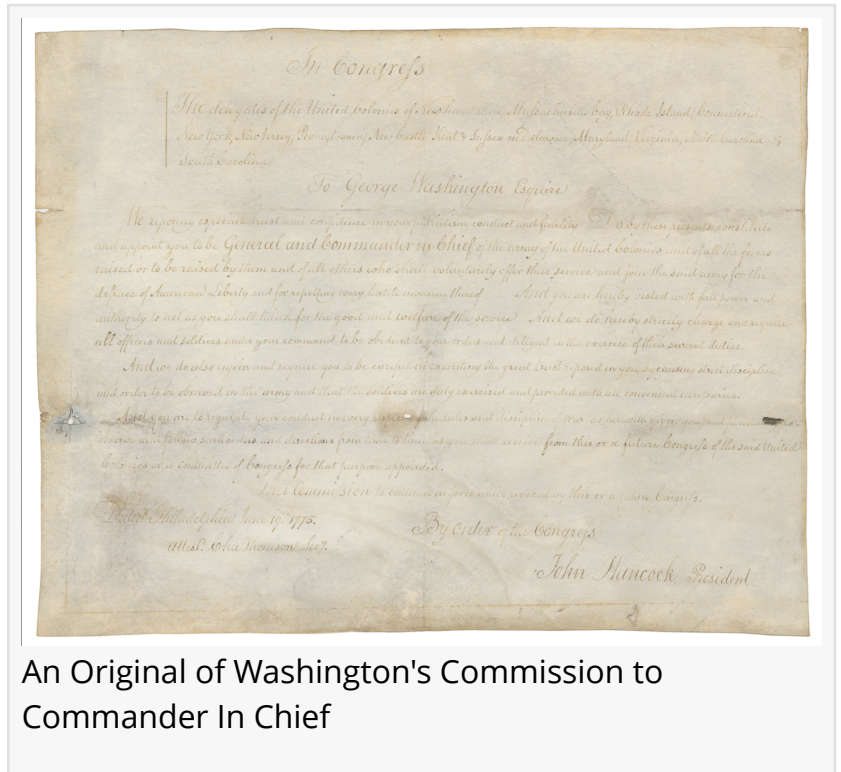 In Congress
The delegates of the United Colonies of New hampshire, Massachusetts bay, Rhode Island, Connecticut,
New York, New Jersey, Pennsylvania, New Castle Kent & Sussex on Delaware, Maryland, Virginia, North Carolina &
South Carolina
To George Washington Esquire
We reposing especial trust and confidence in your patriotism conduct and fidelity Do by these presents constitute
and appoint you to be General and Commander in Chief of the army of the United Colonies and of all the forces
raised or to be raised by them and of all others who shall voluntarily offer their service and join the said army for the
defence of American Liberty and for repelling every hostile invasion thereof And you are hereby vested with full power and
authority to act as you shall think for the good and welfare of the service And we do hereby strictly charge and require
all officers and soldiers under your command to be obedient to your orders and diligent in the exercise of their several duties.
And we do also enjoin and require you to be careful in executing the great trust reposed in you, by causing strict discipline
and order to be observed in the army and that the soldiers are duly exercised and provided with all convenient necessaries.
And you are to regulate your conduct in every the rules and discipline of war as herewith given you and
and follow such orders and directions from time to time as you shall receive from this or a future Congress of the said United
Colonies or a committee of Congress for that purpose appointed.
This Commission to continue in force until revoked by this or a future Congress.
Dated Philadelphia June 19th 1775.
Attest. Cha Thomson Secy.
By order of the Congress
John Hancock President.
An Original of Washington's Commission to
Commander In Chief